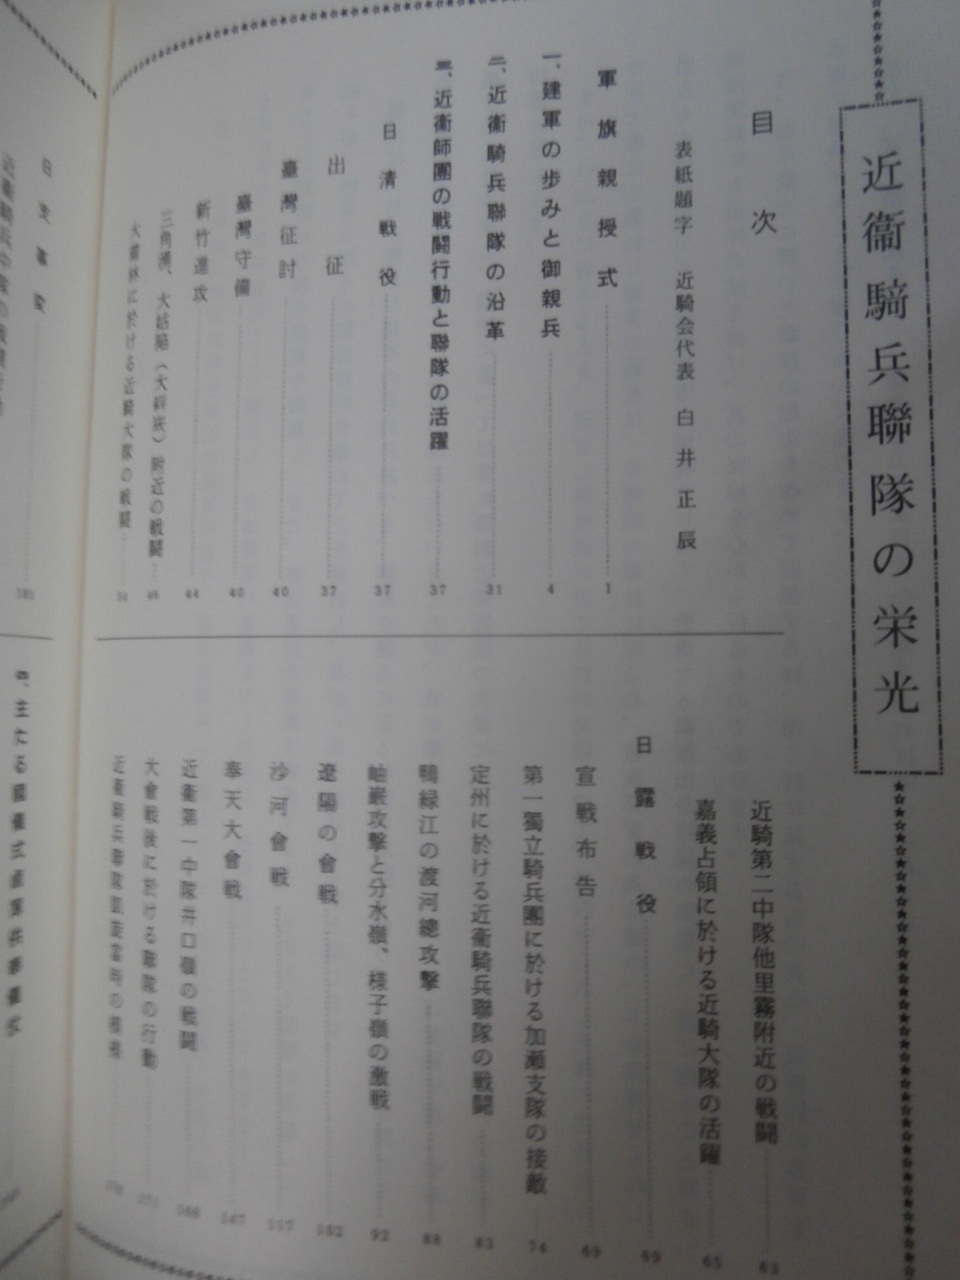 近衞騎兵聯隊の栄光
目次
表紙題字 近騎会代表 白井正辰
軍旗親授式 1
一、建軍の歩みと御親兵 4
二、近衞騎兵聯隊の沿革 31
三、近衞師團の戦闘行動と聯隊の活躍 37
日清戦役 37
出征 37
臺灣征討 40
臺灣守備 40
新竹進攻 44
附近の戦闘
に於ける近騎大隊の戦闘
近騎第二中隊他里霧附近の戦闘 63
嘉義占領に於ける近騎大隊の活躍 65
日露戦役 69
宣戦布告 69
第一獨立騎兵團に於ける加瀬支隊の接敵 74
定州に於ける近衞騎兵聯隊の戦闘 83
鴨緑江の渡河總攻撃 88
岫巖攻撃と分水嶺、様子嶺の激戦 92
遼陽の會戦
沙河會戦
奉天大會戦
近衞第一中隊井口嶺の戦闘
大會戦後に於ける聯隊の行動
近衞騎兵聯隊凱旋當時の
日支事変